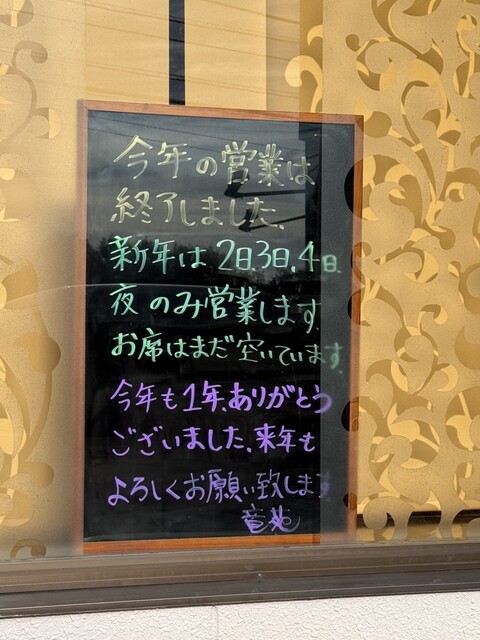 今年の営業は
終了しました。
新年は2日.3日.4日.
夜のみ営業します。
お席はまだ空いています。
今年も1年、ありがとう
ございました、来年も
よろしくお願い致します